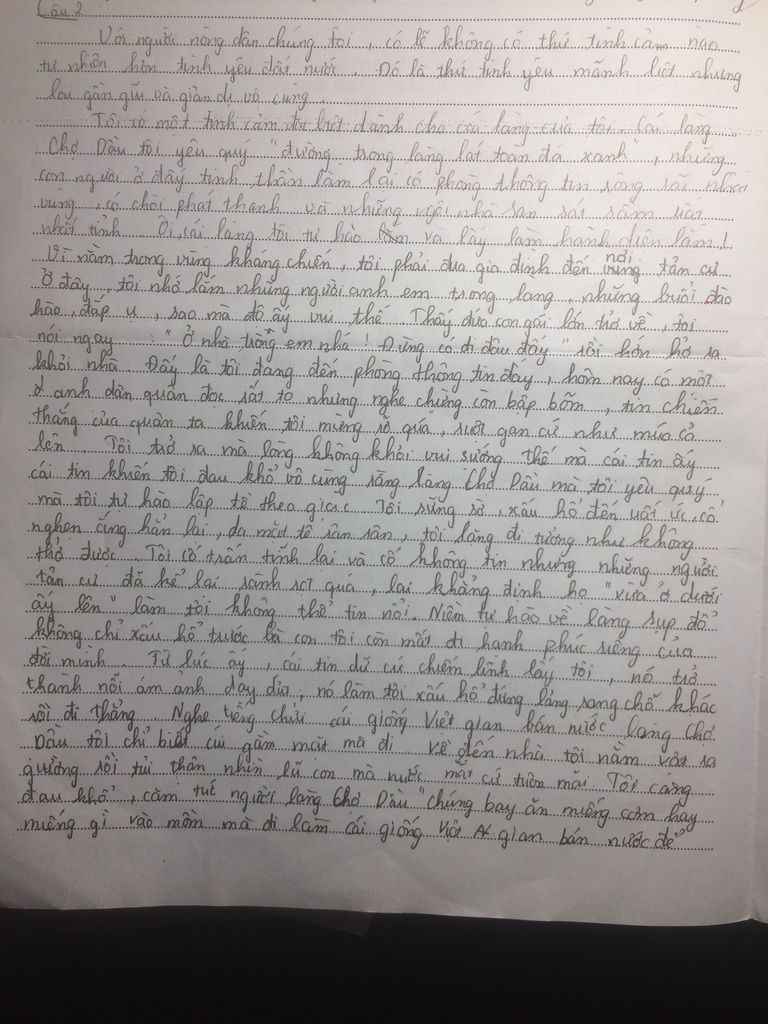 Câu 2
Với người nông dân chúng tôi, có lẽ không có thứ tình cảm nào
tự nhiên hơn tình yêu đất nước. Đó là thứ tình yêu mãnh liệt nhưng
lại gần gũi và giản dị vô cùng
Tôi có một tình cảm đặc biệt dành cho cái làng của tôi. Cái làng
Chợ Dầu tôi yêu quý "đường trong làng lát toàn đá xanh", những
con người ở đây tinh thần lắm lại có phòng thông tin rộng rãi nhất
vùng, có chòi phát thanh và những ngôi nhà san sát sầm uất
nhất tỉnh. Ôi, cái làng tôi tự hào lắm và lấy làm hãnh diện lắm!
Vì nằm trong vùng kháng chiến, tôi phải đưa gia đình đến nơi tản cư
Ở đây, tôi nhớ lắm những người anh em trong làng, những buổi đào
hào, đắp ụ, sao mà độ ấy vui thế. Thấy đứa con gái lớn trở về, tôi
nói ngay : "Ở nhà trông em nhá! Đừng có đi đâu đấy" rồi hớn hở ra
khỏi nhà. Đấy là tôi đang đến phòng thông tin đấy, hôm nay có một
ở anh dân quân đọc rất to nhưng nghe chừng còn bập bõm, tin chiến
thắng của quân ta khiến tôi mừng rỡ quá, ruột gan cứ như múa cả
lên. Tôi trở ra mà lòng không khỏi vui sướng thế mà cái tin ấy
cái tin khiến tôi đau khổ vô cùng rằng làng Chợ Dầu mà tôi yêu quý
mà tôi tự hào lập tề theo giặc. Tôi sững sờ, xấu hổ đến uất ức, cổ
nghẹn ắng hẳn lại, da mặt tê rân rân, tôi lặng đi tưởng như không
thở được. Tôi cố trấn tĩnh lại và cố không tin nhưng những người
tản cư đã kể lại rành rọt quá, lại khẳng định họ "vừa ở dưới
ấy lên" làm tôi không thể tin nổi. Niềm tự hào về làng sụp đổ
không chỉ xấu hổ trước bà con tôi còn mất đi hạnh phúc riêng của
đời mình. Từ lúc ấy, cái tin dữ cứ chiếm lĩnh lấy tôi, nó trở
thành nỗi ám ảnh day dứa, nó làm tôi xấu hổ đứng lảng sang chỗ khác
rồi đi thẳng. Nghe tiếng chửi cái giống Việt gian bán nước làng Chợ
Dầu tôi chỉ biết cúi gằm mặt mà đi. Về đến nhà tôi nằm vật ra
giường rồi tủi thân nhìn lũ con mà nước mắt cứ tuôn mãi. Tôi càng
đau khổ, căm tức người làng Chợ Dầu "chúng bay ăn miếng cơm hay
miếng gì vào mồm mà đi làm cái giống Việt gian bán nước để"